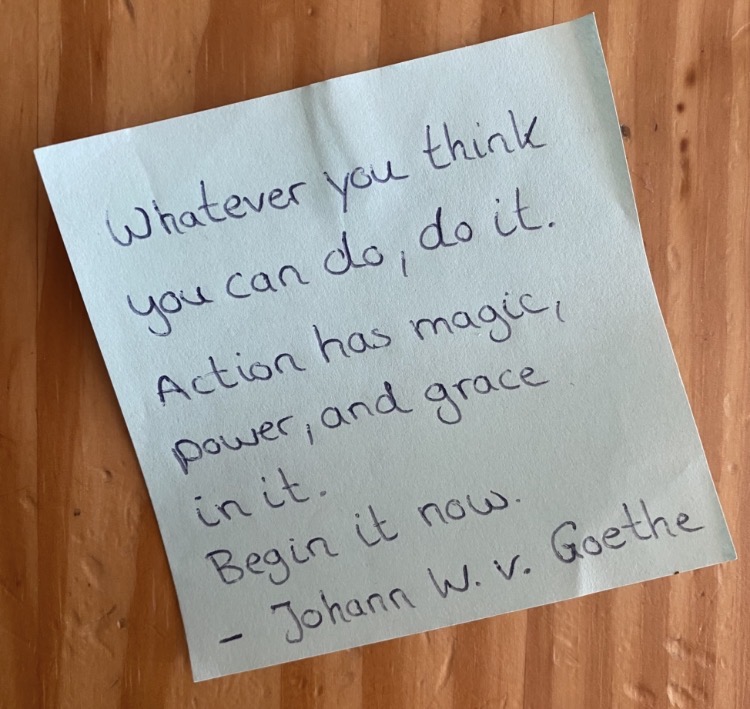 Whatever you think
you can do, do it.
Action has magic,
power, and grace
in it.
Begin it now.
- Johann W. v. Goethe